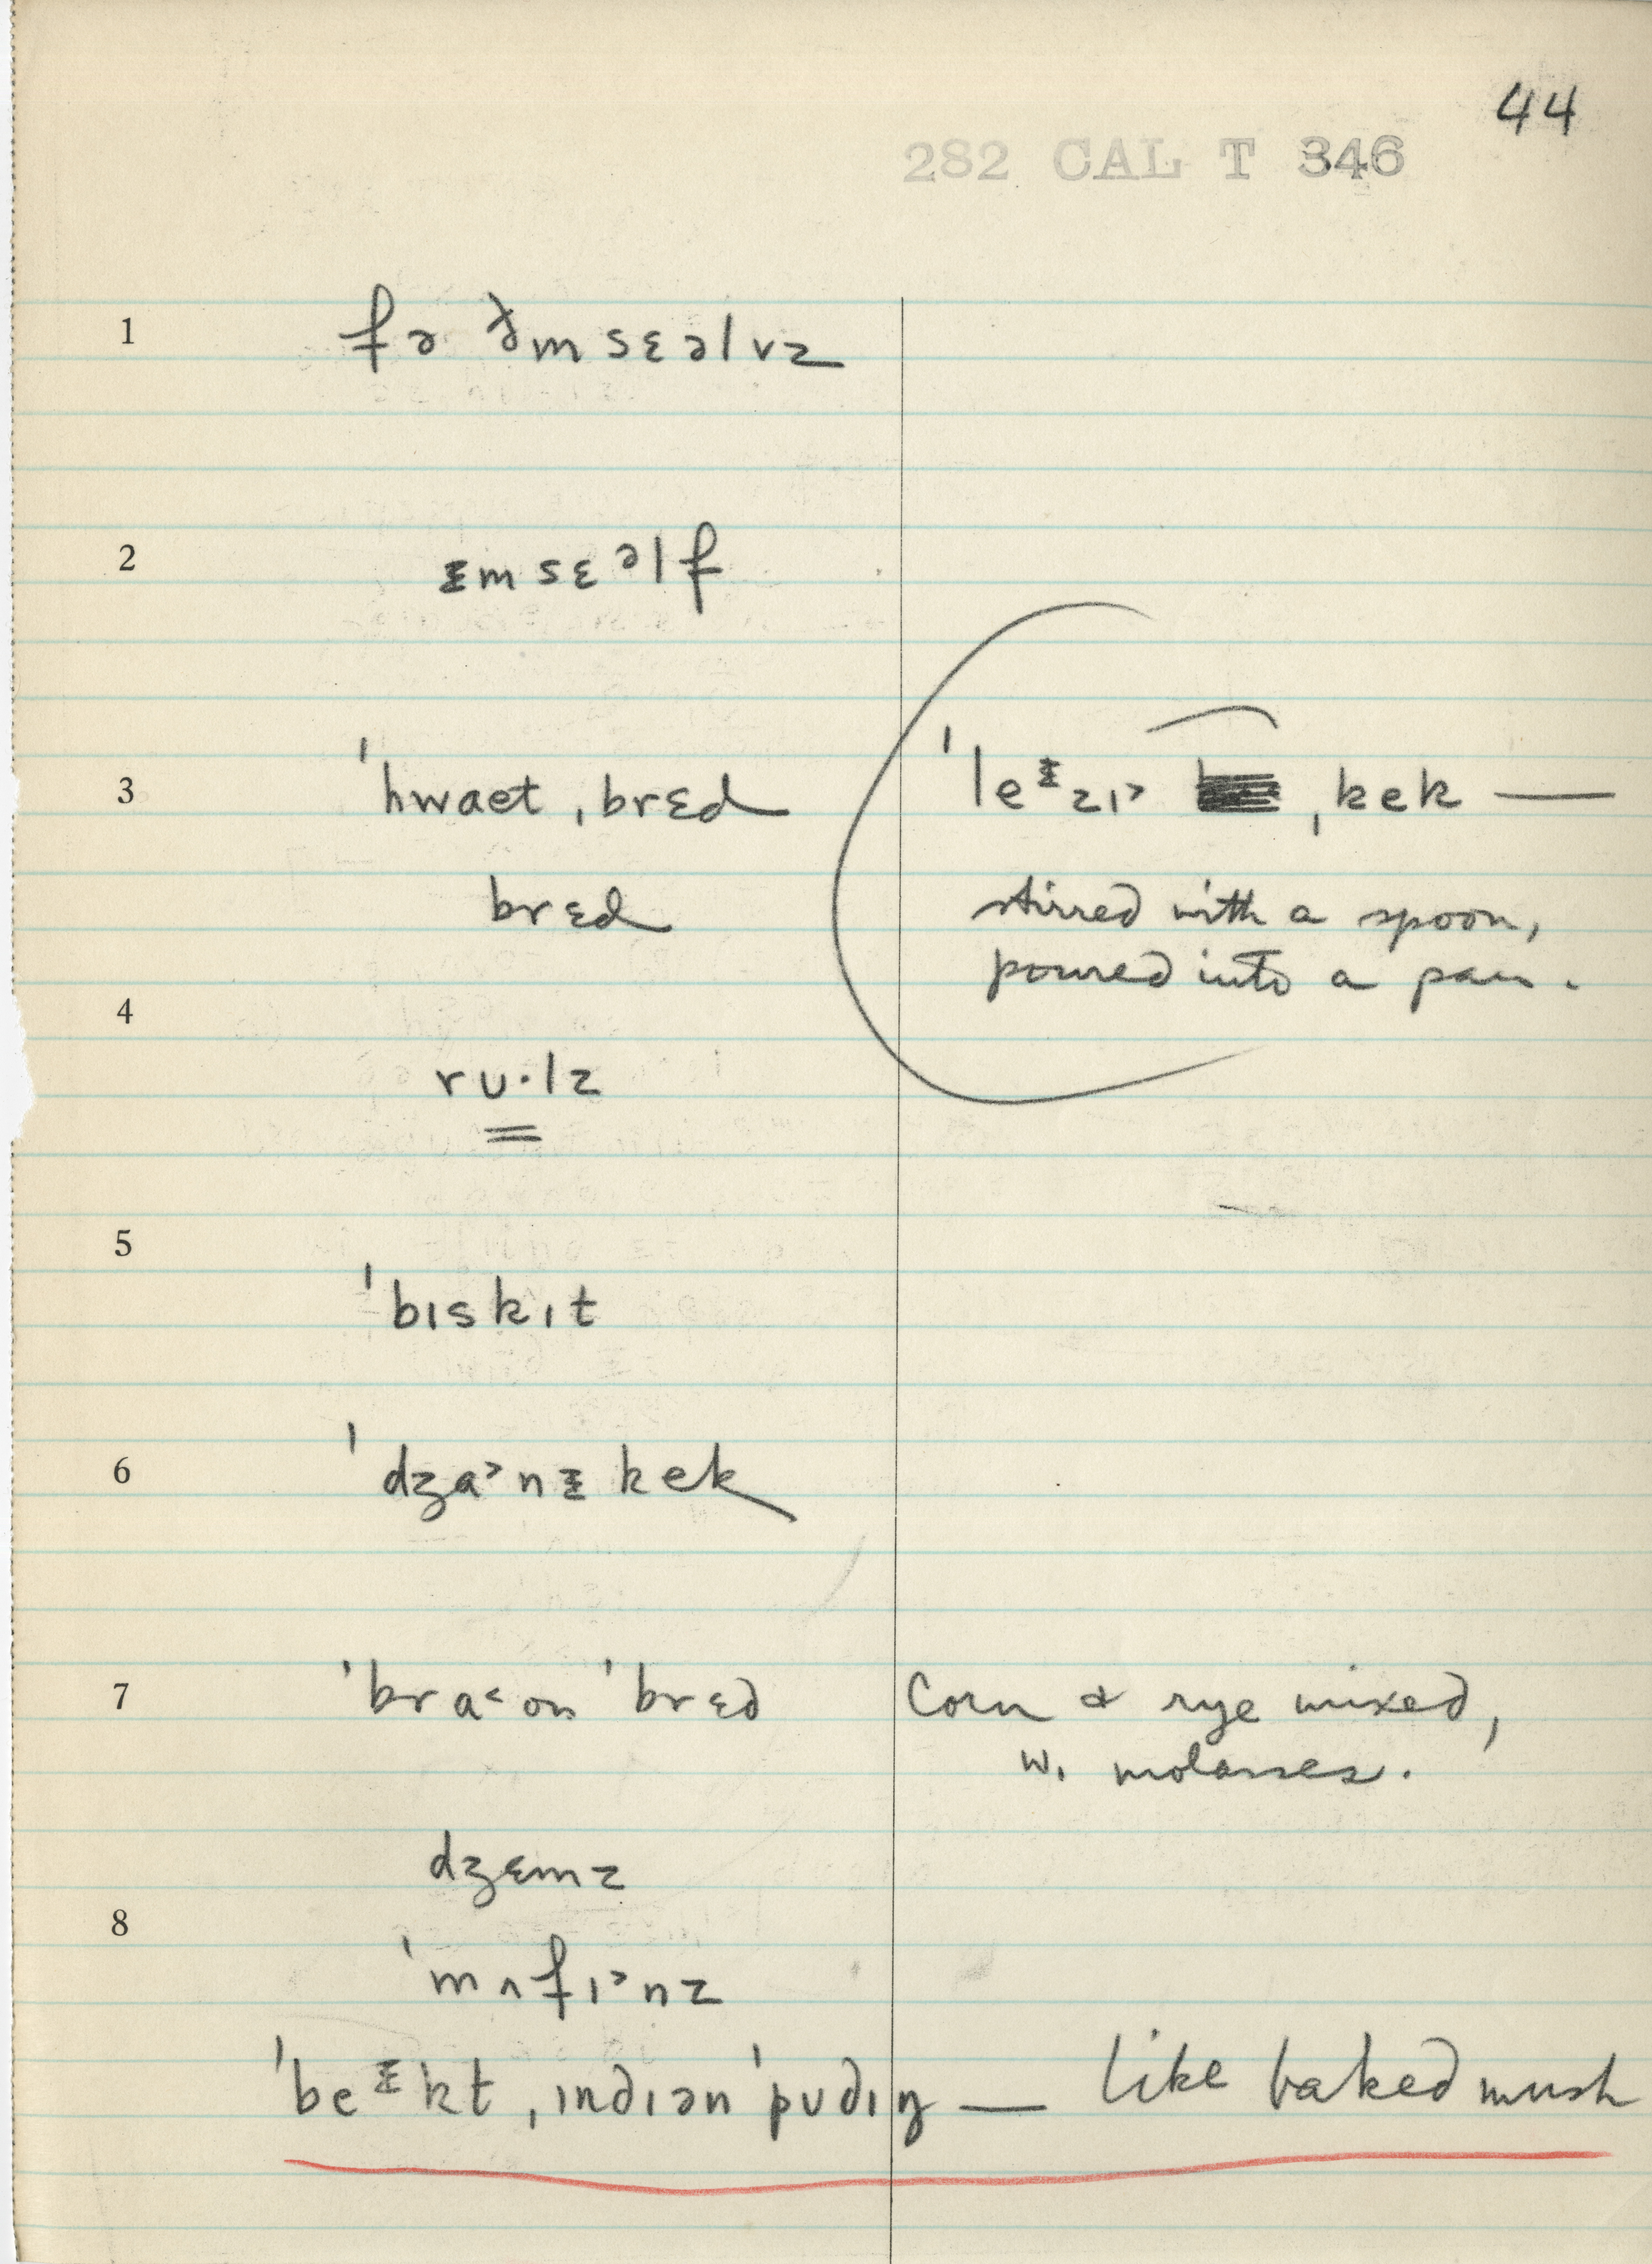 44
282 CAL T 346
1 fə ðm sɛəlvz
2 ᵻm sɛᵊlf
3 ˈhwaet ˌbrɛd ˈleᵻzɪ˃ ˌkek —
brɛd stirred with a spoon,
poured into a pan.
4
rʊ·lz
5
ˈbɪskɪt
6 ˈdʒa˃nᵻ kek
7 ˈbra˂ʊn ˈbrɛd Corn & rye mixed,
w. molasses.
dʒɛmz
8
ˈmʌfɪ˃nz
ˈbeᵻkt ˌɪndɪən ˈpʊdɪŋ — like baked mush